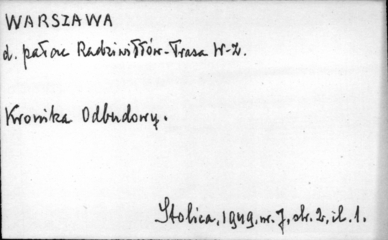 WARSZAWA
d. pałac Radziwiłłów-Trasa W-Z.
Kronika Odbudowy.
Stolica, 1949, nr. 7, str. 2, il. 1.